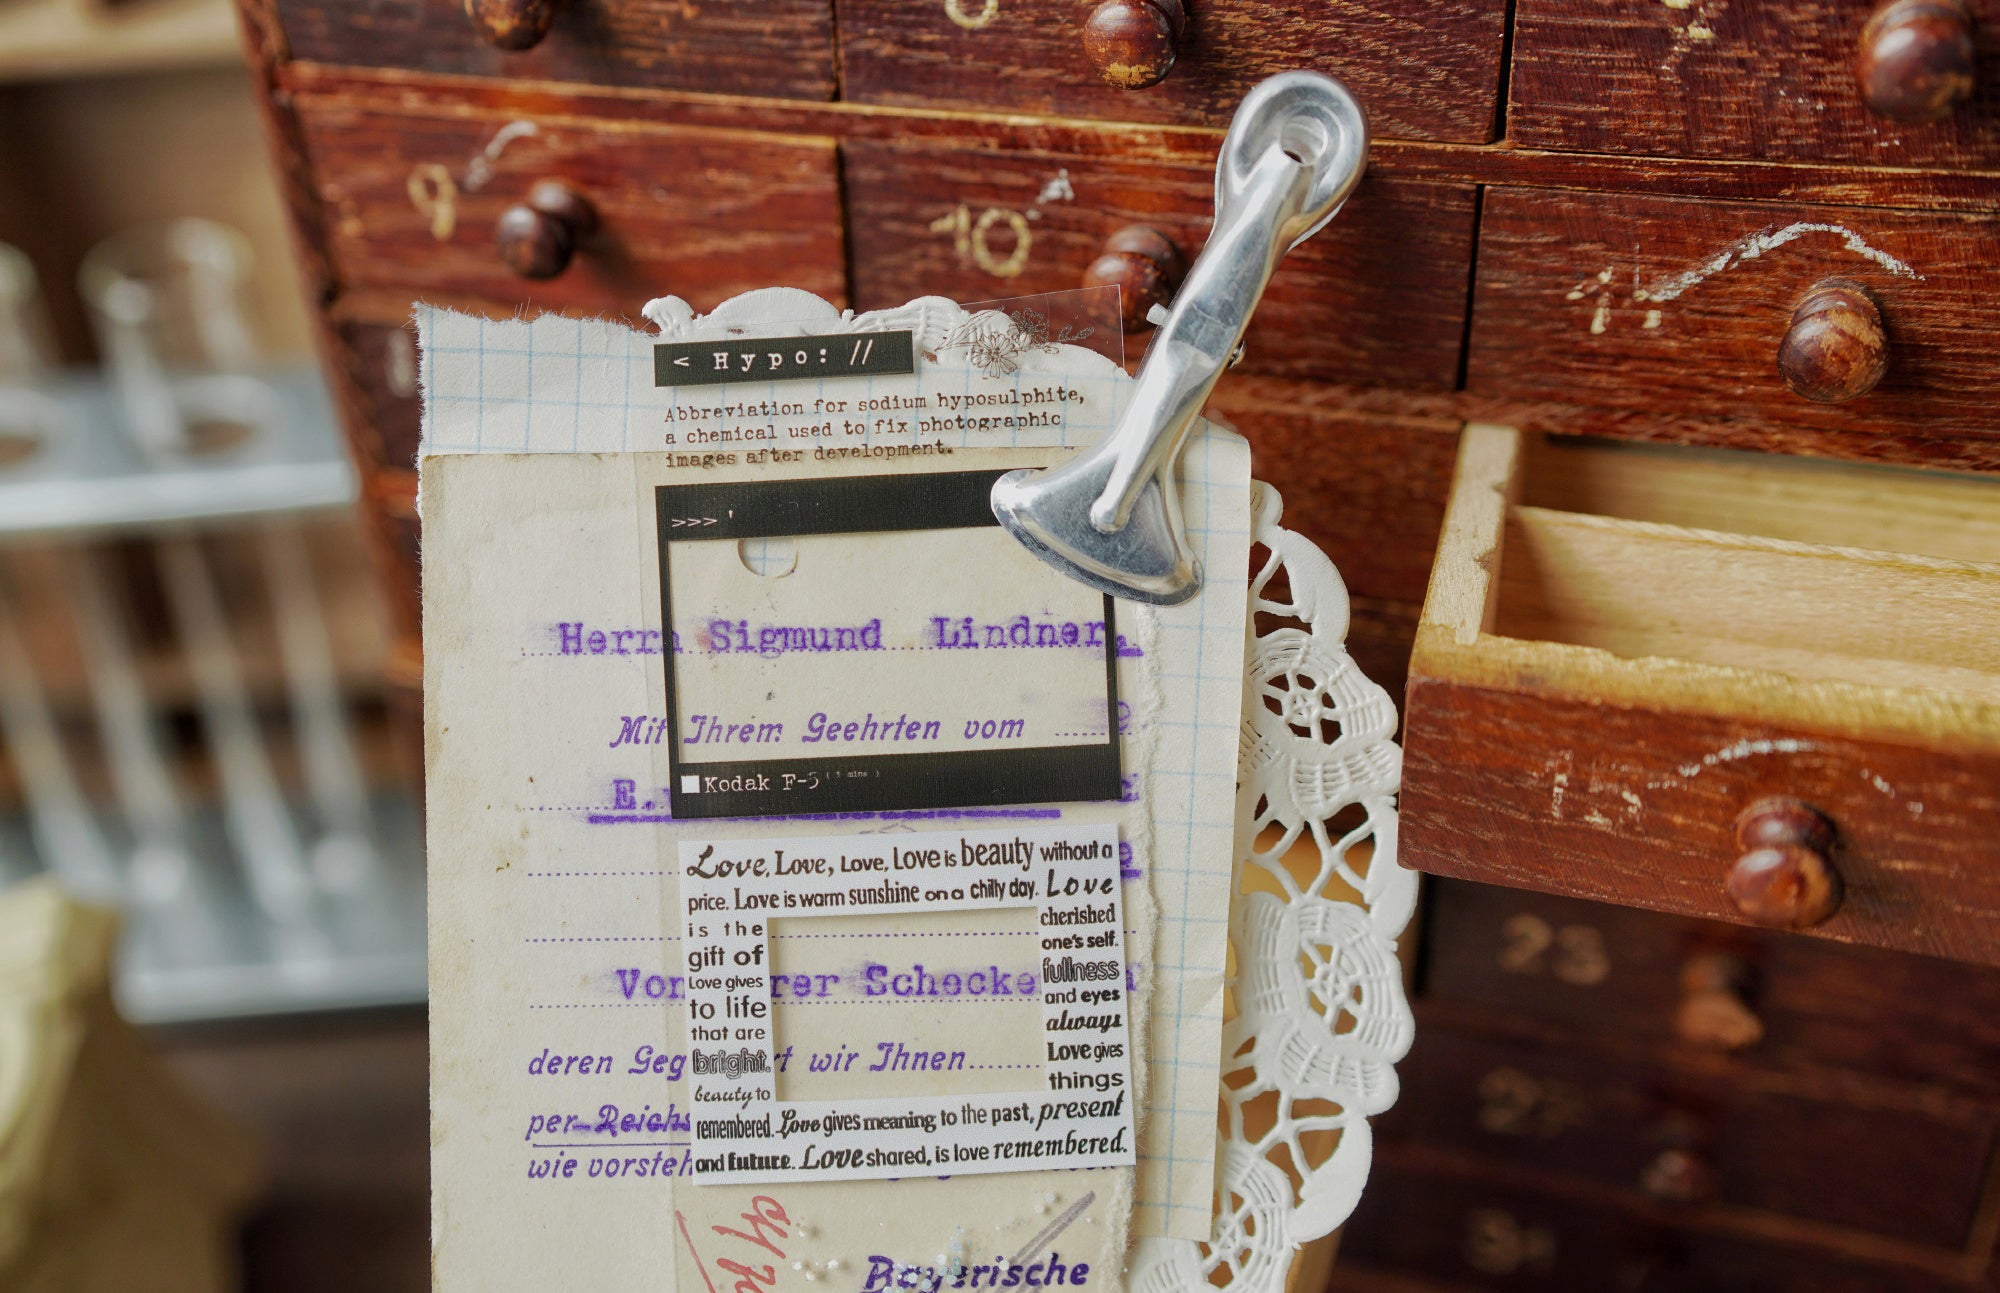 9
10
11
< Hypo: //
Abbreviation for sodium hyposulphite,
a chemical used to fix photographic
images after development.
>>> '
Herrn Sigmund Lindner,
Mit Ihrem Geehrten vom
E.
Kodak F-5 (3 mins)
Love, Love, Love, Love is beauty without a
price. Love is warm sunshine on a chilly day. Love
is the
gift of
Love gives
to life
that are
bright.
beauty to
cherished
one's self.
fullness
and eyes
always
Love gives
things
remembered. Love gives meaning to the past, present
and future. Love shared, is love remembered.
rer Schecke
deren Geg rt wir Ihnen
per Reichs
wie vorsteh
Bayerische
23